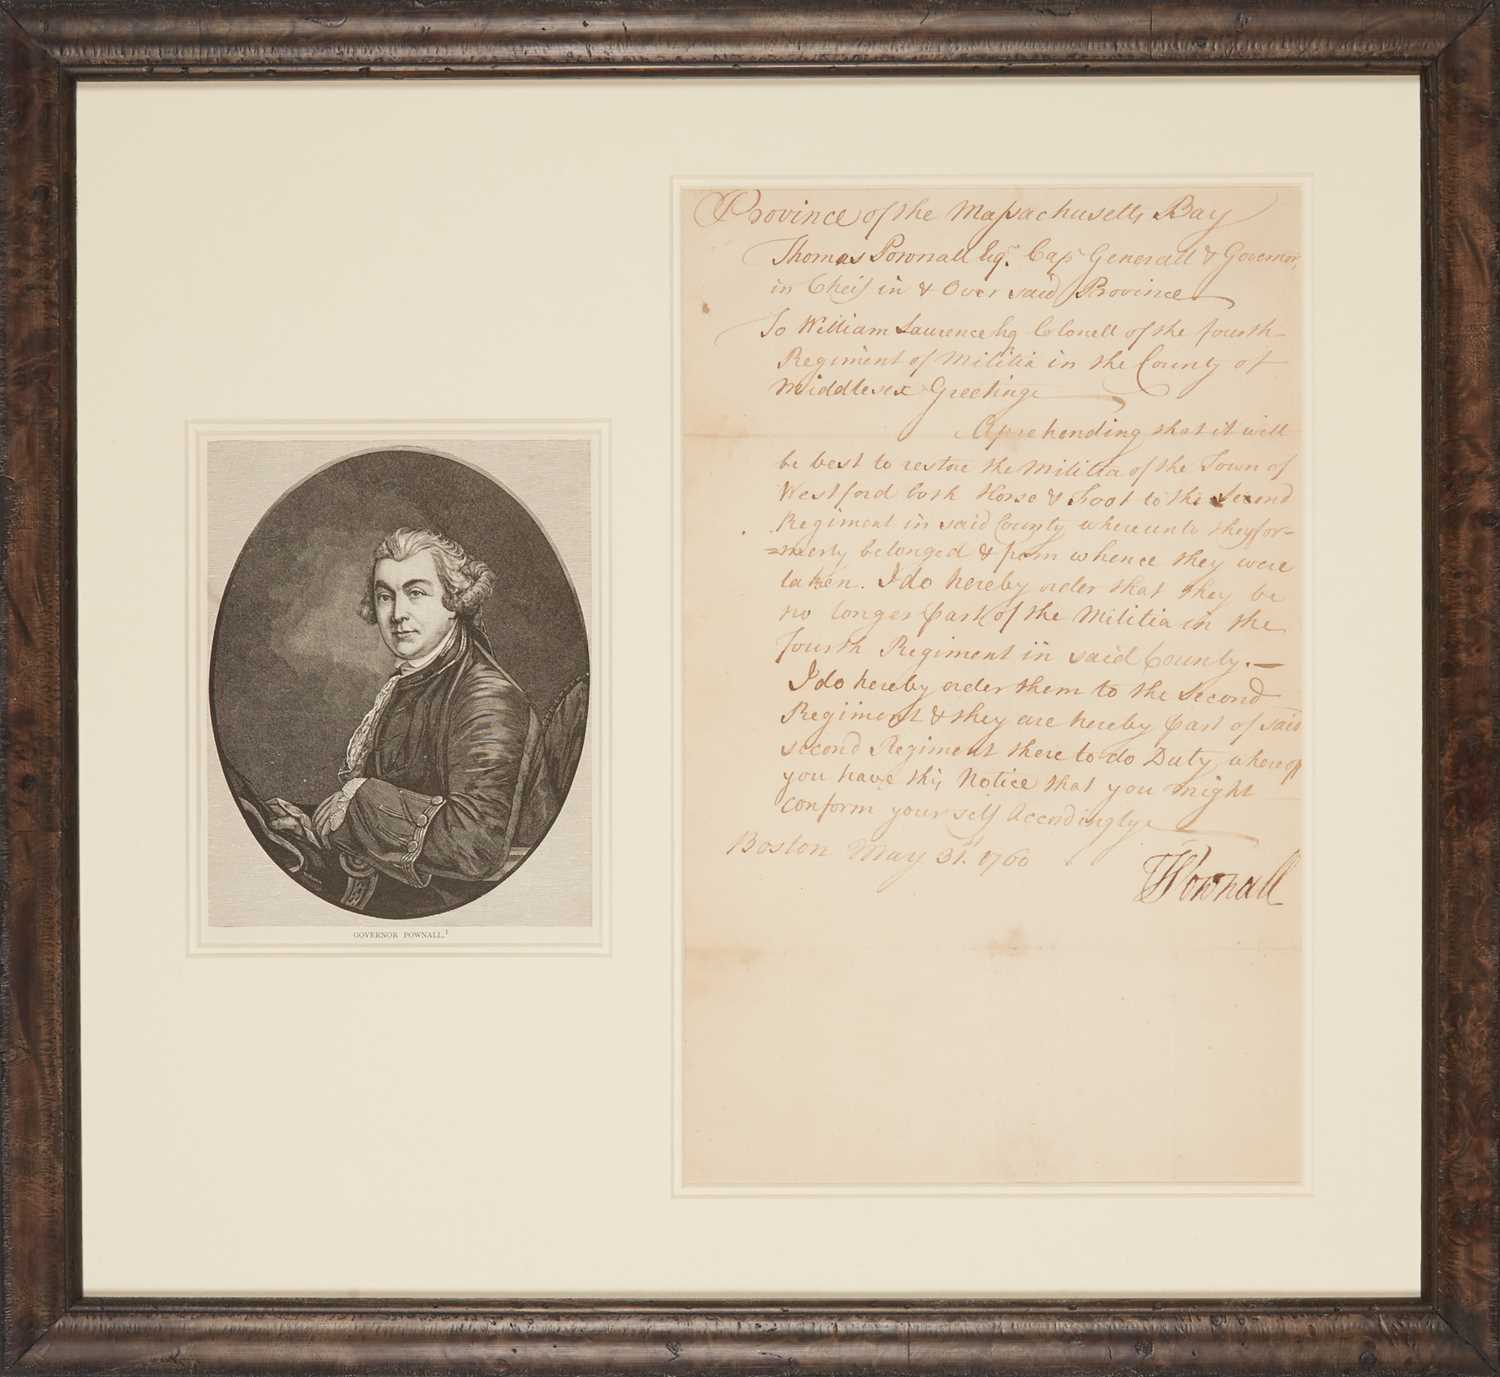 Province of the Massachusetts Bay
Thomas Pownall Esqr. Capt Generall & Governor,
in Cheif in & Over said Province
To William Laurence Esq Colonell of the fourth
Regiment of Militia in the County of
Middlesex Greeting
Aprehending that it will
be best to restore the Militia of the Town of
Westford both Horse & Foot to the Second
Regiment in said County whereunto they for-
=merly belonged & from whence they were
taken. I do hereby order that they be
no longer Part of the Militia in the
fourth Regiment in said County.—
I do hereby order them to the Second
Regiment & they are hereby Part of said
second Regiment there to do Duty, whereof
you have this Notice that you might
conform your self Accordingly
Boston May 31st. 1760
TPownall
GOVERNOR POWNALL.1